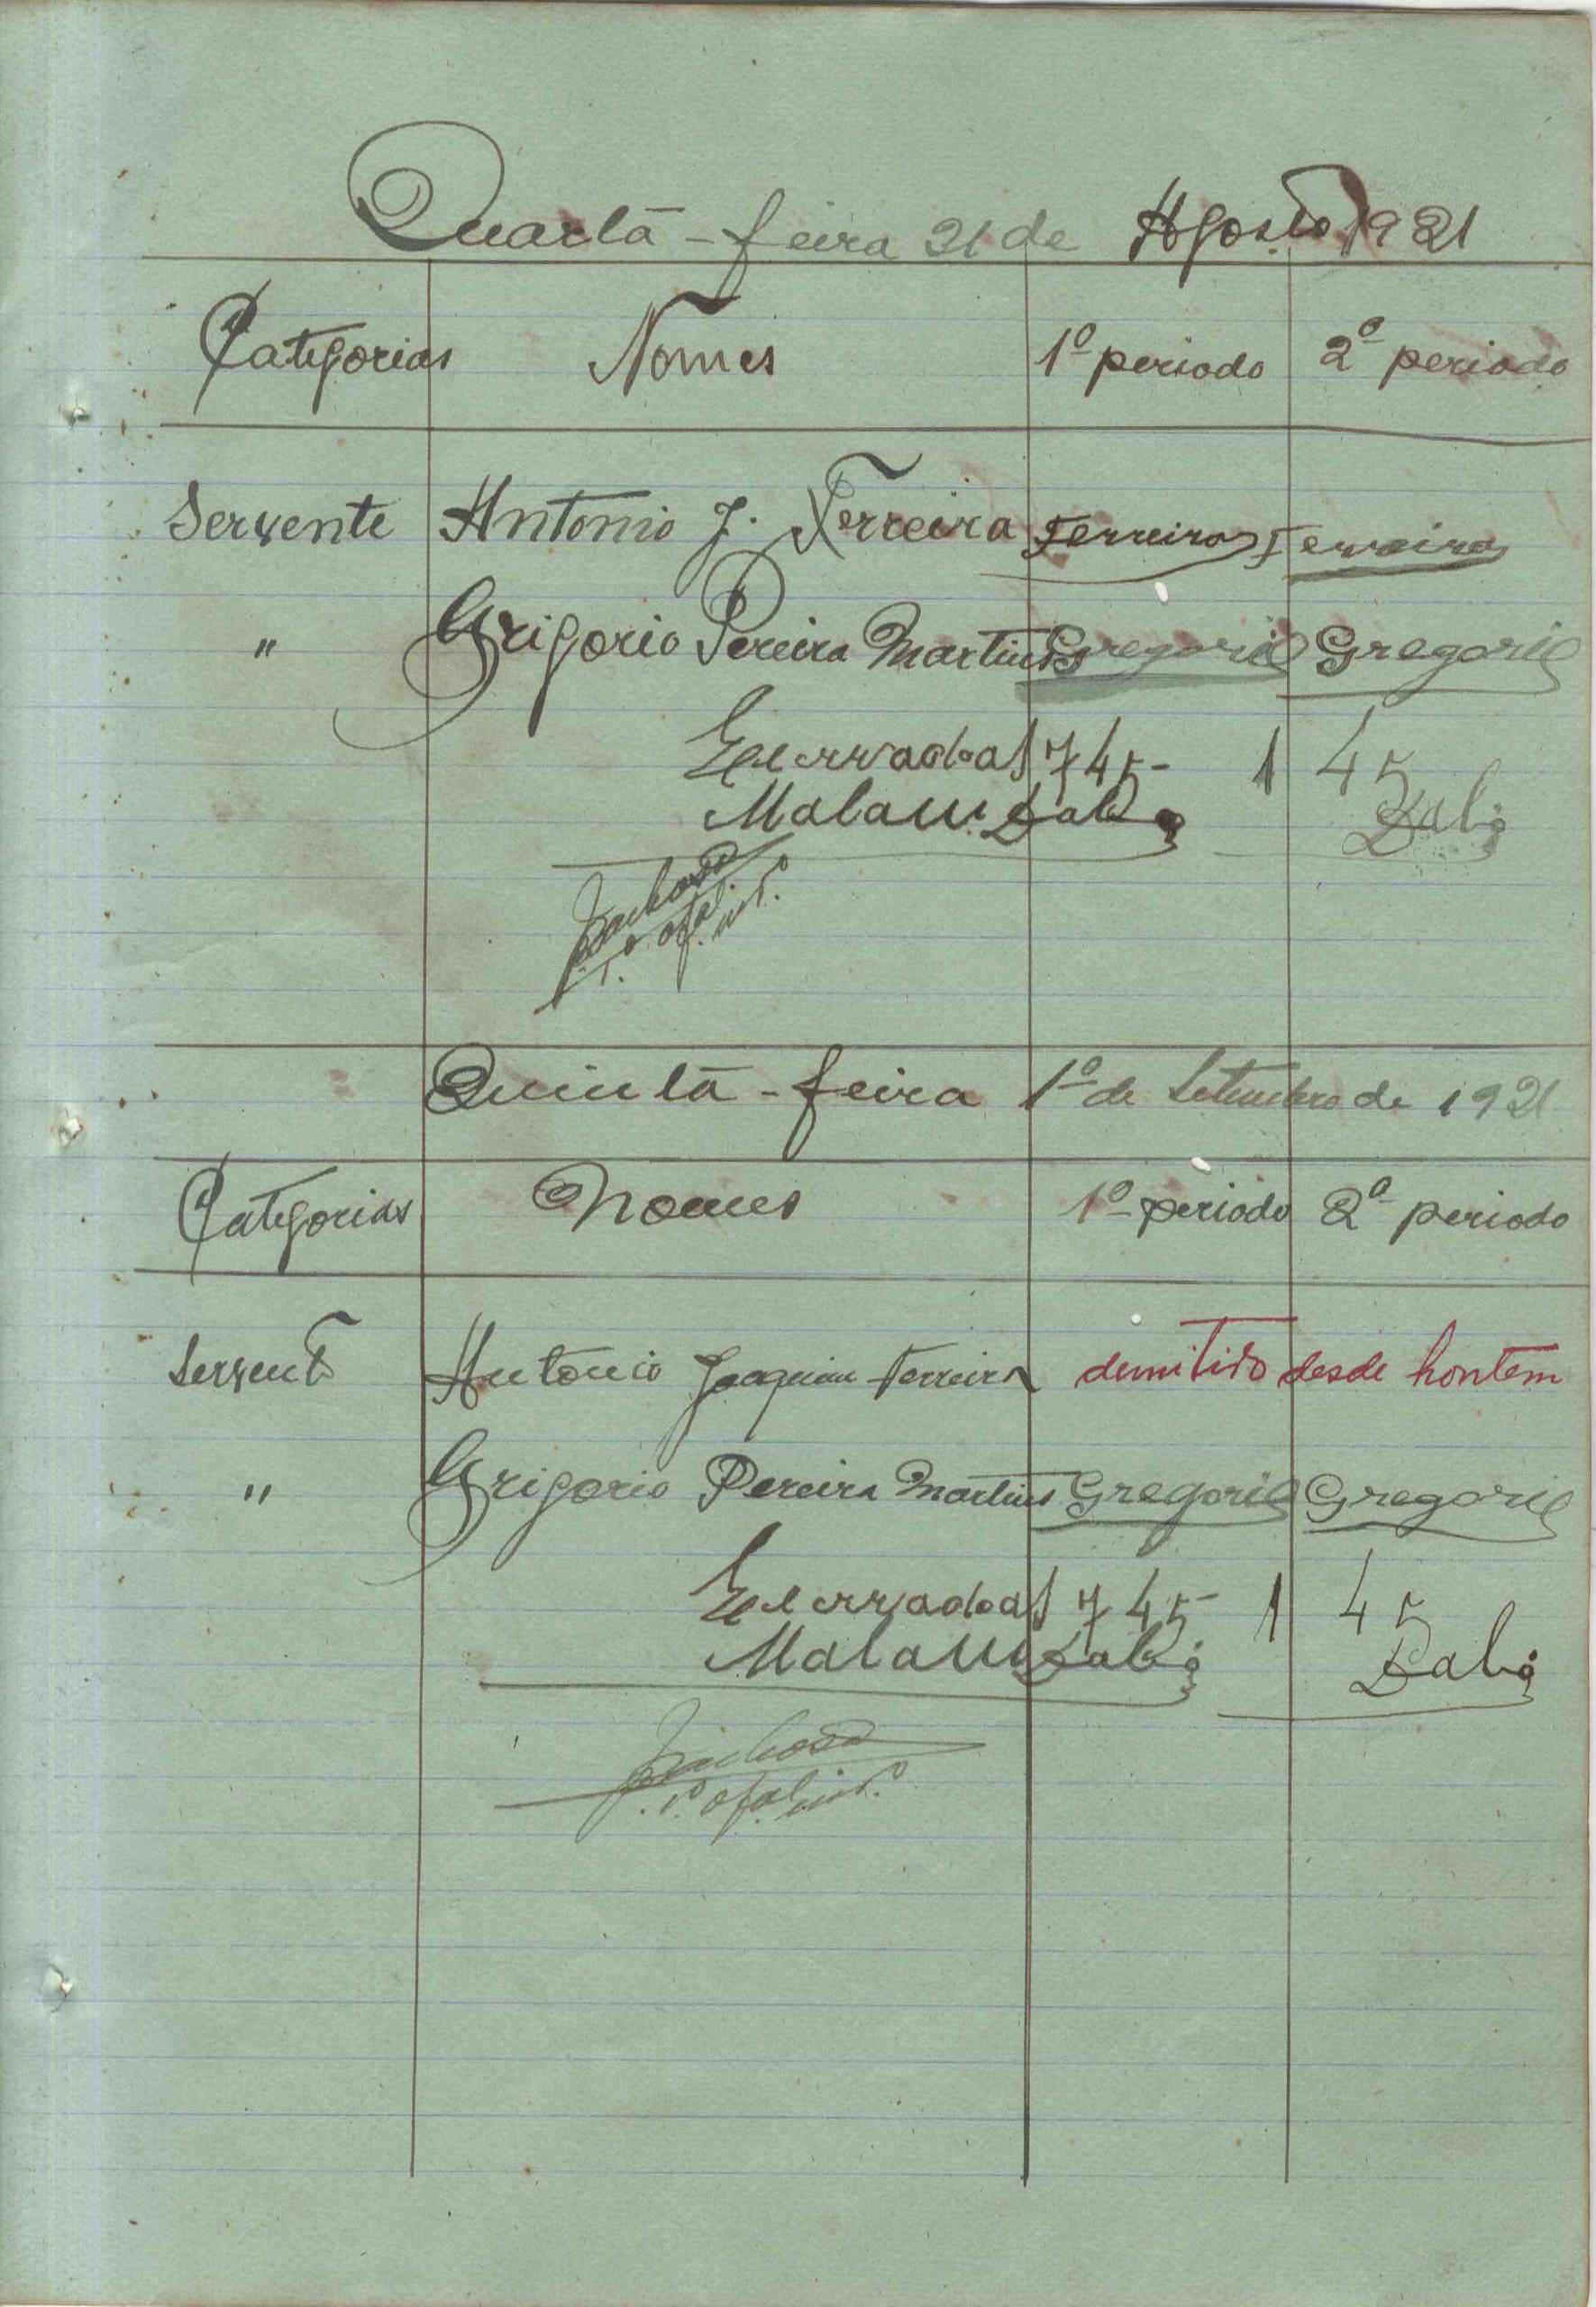 Quarta-feira 21 de Agosto 1921
Categorias Nomes 1º periodo 2º periodo
Servente Antonio J. Ferreira Ferreira Ferreira
" Grigorio Pereira Martins Gregorio Gregorio
Encerrado ás 7 45 - 1 45
Malam Dabó Dabó
Barbosa
Quinta-feira 1º de Setembro de 1921
Categorias Nomes 1º periodo 2º periodo
Servente Antonio Joaquim Ferreira demitido desde hontem
" Grigorio Pereira Martins Gregorio Gregorio
Encerrado ás 7 45 - 1 45
Malam Dabó Dabó
Barbosa